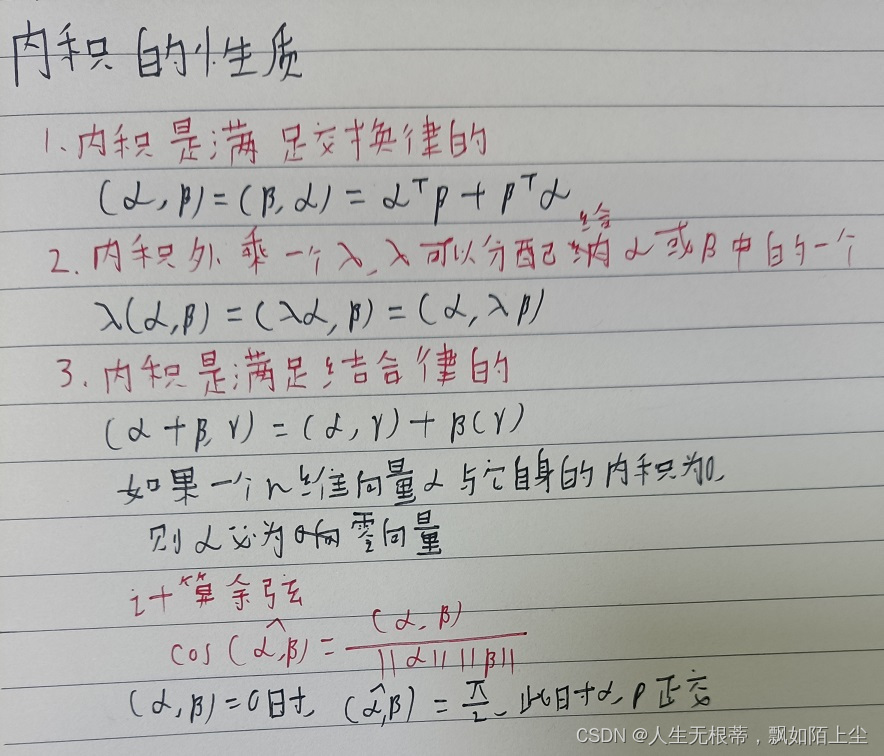 内积的性质
1.内积是满足交换律的
(α,β)=(β,α)=αᵀβ+βᵀα
2.内积外乘一个λ,λ可以分配给α或β中的一个
λ(α,β)=(λα,β)=(α,λβ)
3.内积是满足结合律的
(α+β,γ)=(α,γ)+β(γ)
如果一个n维向量α与它自身的内积为0,
则α必为零向量
计算余弦
cos(α,^β)=(α,β)/||α|| ||β||
(α,β)=0时,(α,^β)=π/2、此时α,β正交
CSDN @人生无根蒂，飘如陌上尘